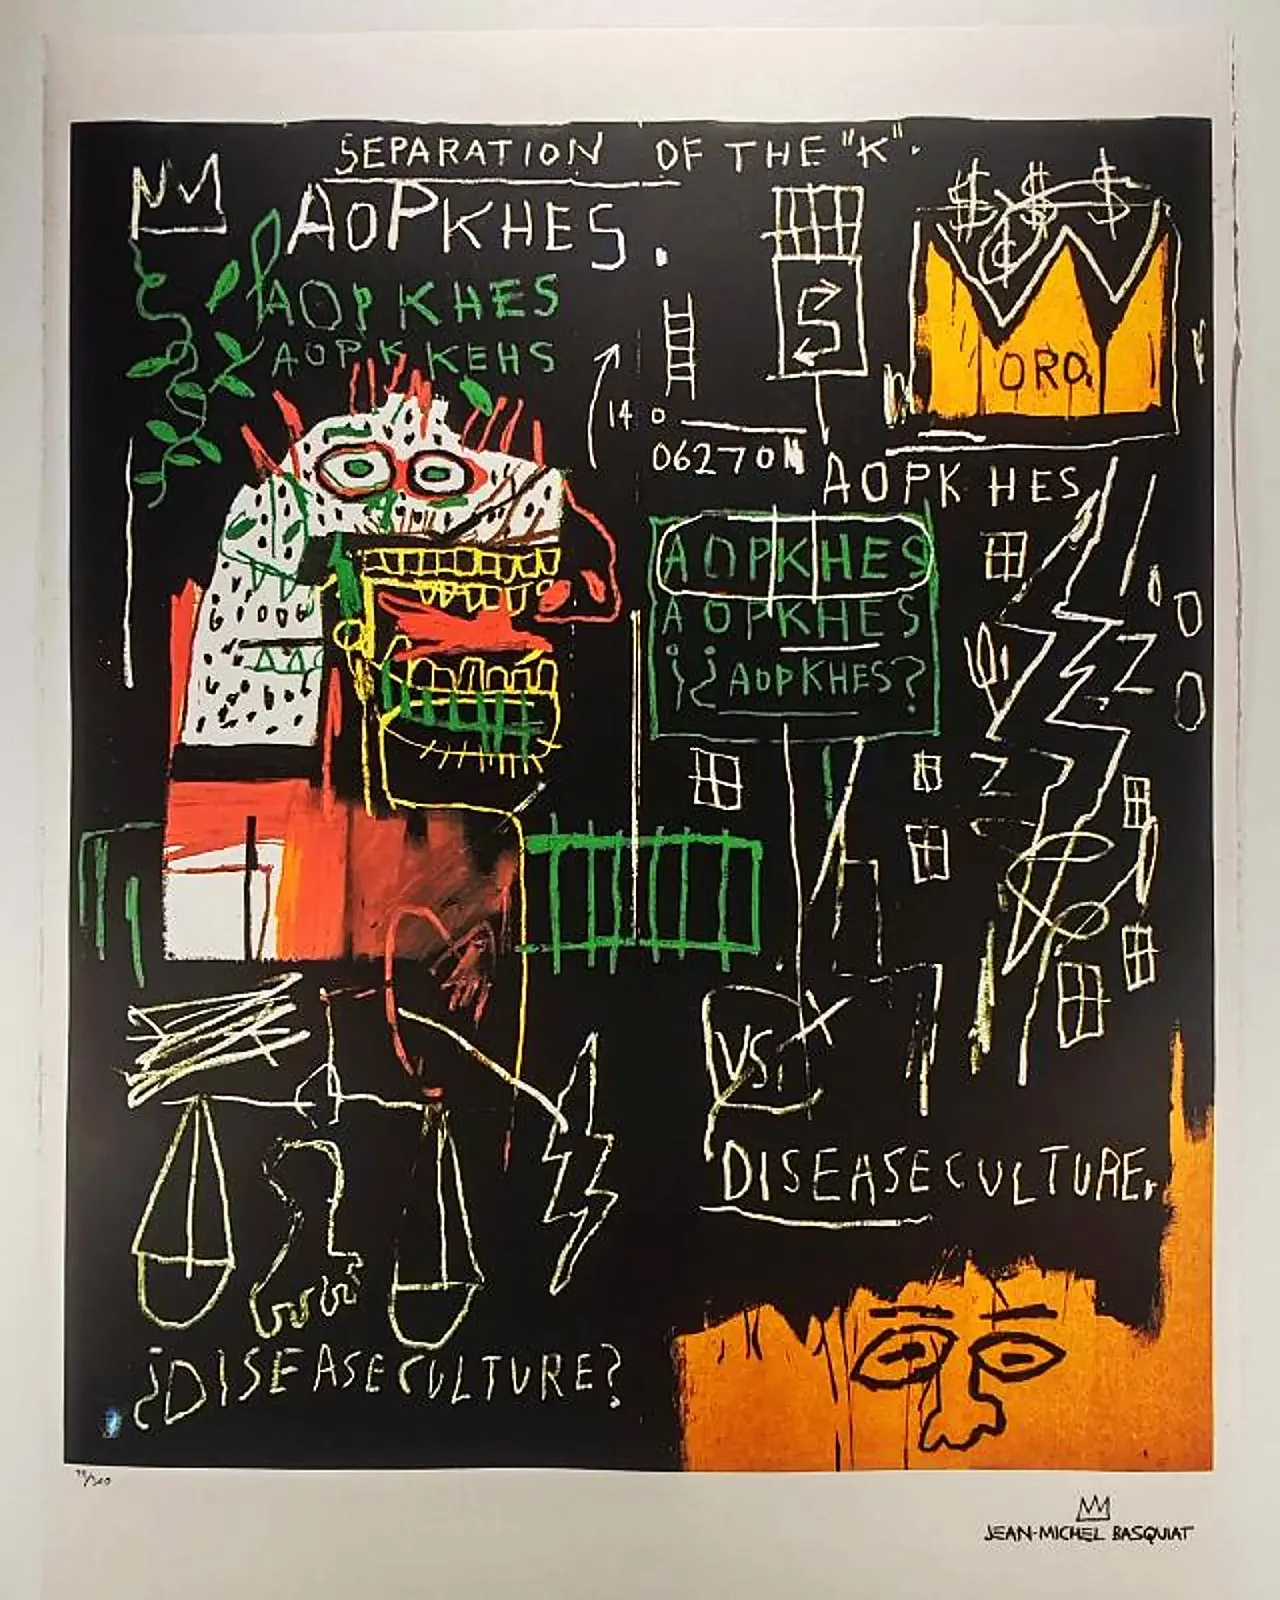 SEPARATION OF THE "K".
AOPKHES.
AOPKHES
AOPKKEHS
$ $ $
¢
S
ORO.
14 0
06270
AOPKHES
AOPKHES
AOPKHES
¿¿AOPKHES?
Z
Z
VS.
X
DISEASECULTURE.
¿DISEASECULTURE?
JEAN-MICHEL BASQUIAT